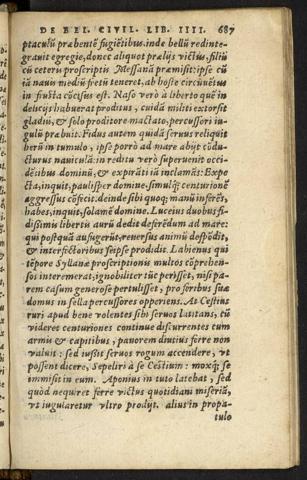 DE BEL. CIVIL. LIB. IIII. 687
ptaculū præbentē fugiētibus. inde bellū redinte-
grauit egregie, donec aliquot prælijs victus, filiū
cū ceteris proscriptis Messanā præmisit: ipse cū
iā naui mediū fretū teneret, ab hoste circūuētus
in frusta cōcisus est. Naso verò à liberto quē in
delicijs habuerat proditus, cuidā militi extorsit
gladiū, & solo proditore mactato, percussori iu-
gulū præbuit. Fidus autem quidā seruus reliquit
herū in tumulo, ipse porrò ad mare abijt cōdu-
cturus nauiculā: in reditu verò superuenit occi-
dētibus dominū, & expirāti iā inclamās: Expe-
cta, inquit, paulisper domine, simulq; centurionē
aggressus cōfecit. deinde sibi quoq; manū inferēs,
habes, inquit, solamē domine. Luceius duobus fi-
dissimis libertis aurū dedit deferēdum ad mare:
qui postquā aufugerūt, reuersus animū despōdit,
& interfectoribus seipse prodidit. Labienus qui
tēpore Syllanæ proscriptionis multos cōprehen-
sos interemerat, ignobiliter tūc perisset, nisi pa-
rem casum generose pertulisset, pro foribus suæ
domus in sella percussores opperiens. At Cestius
ruri apud bene volentes sibi seruos latitans, cū
videret centuriones continue discurrentes cum
armis & capitibus, pauorem diutius ferre non
valuit: sed iussit seruos rogum accendere, vt
possent dicere, Sepeliri à se Cestium: moxq; se
immisit in eum. Aponius in tuto latebat, sed
quòd nequiret ferre victus quotidiani miseriā,
vt iugularetur vltro prodijt. alius in propa-
tulo